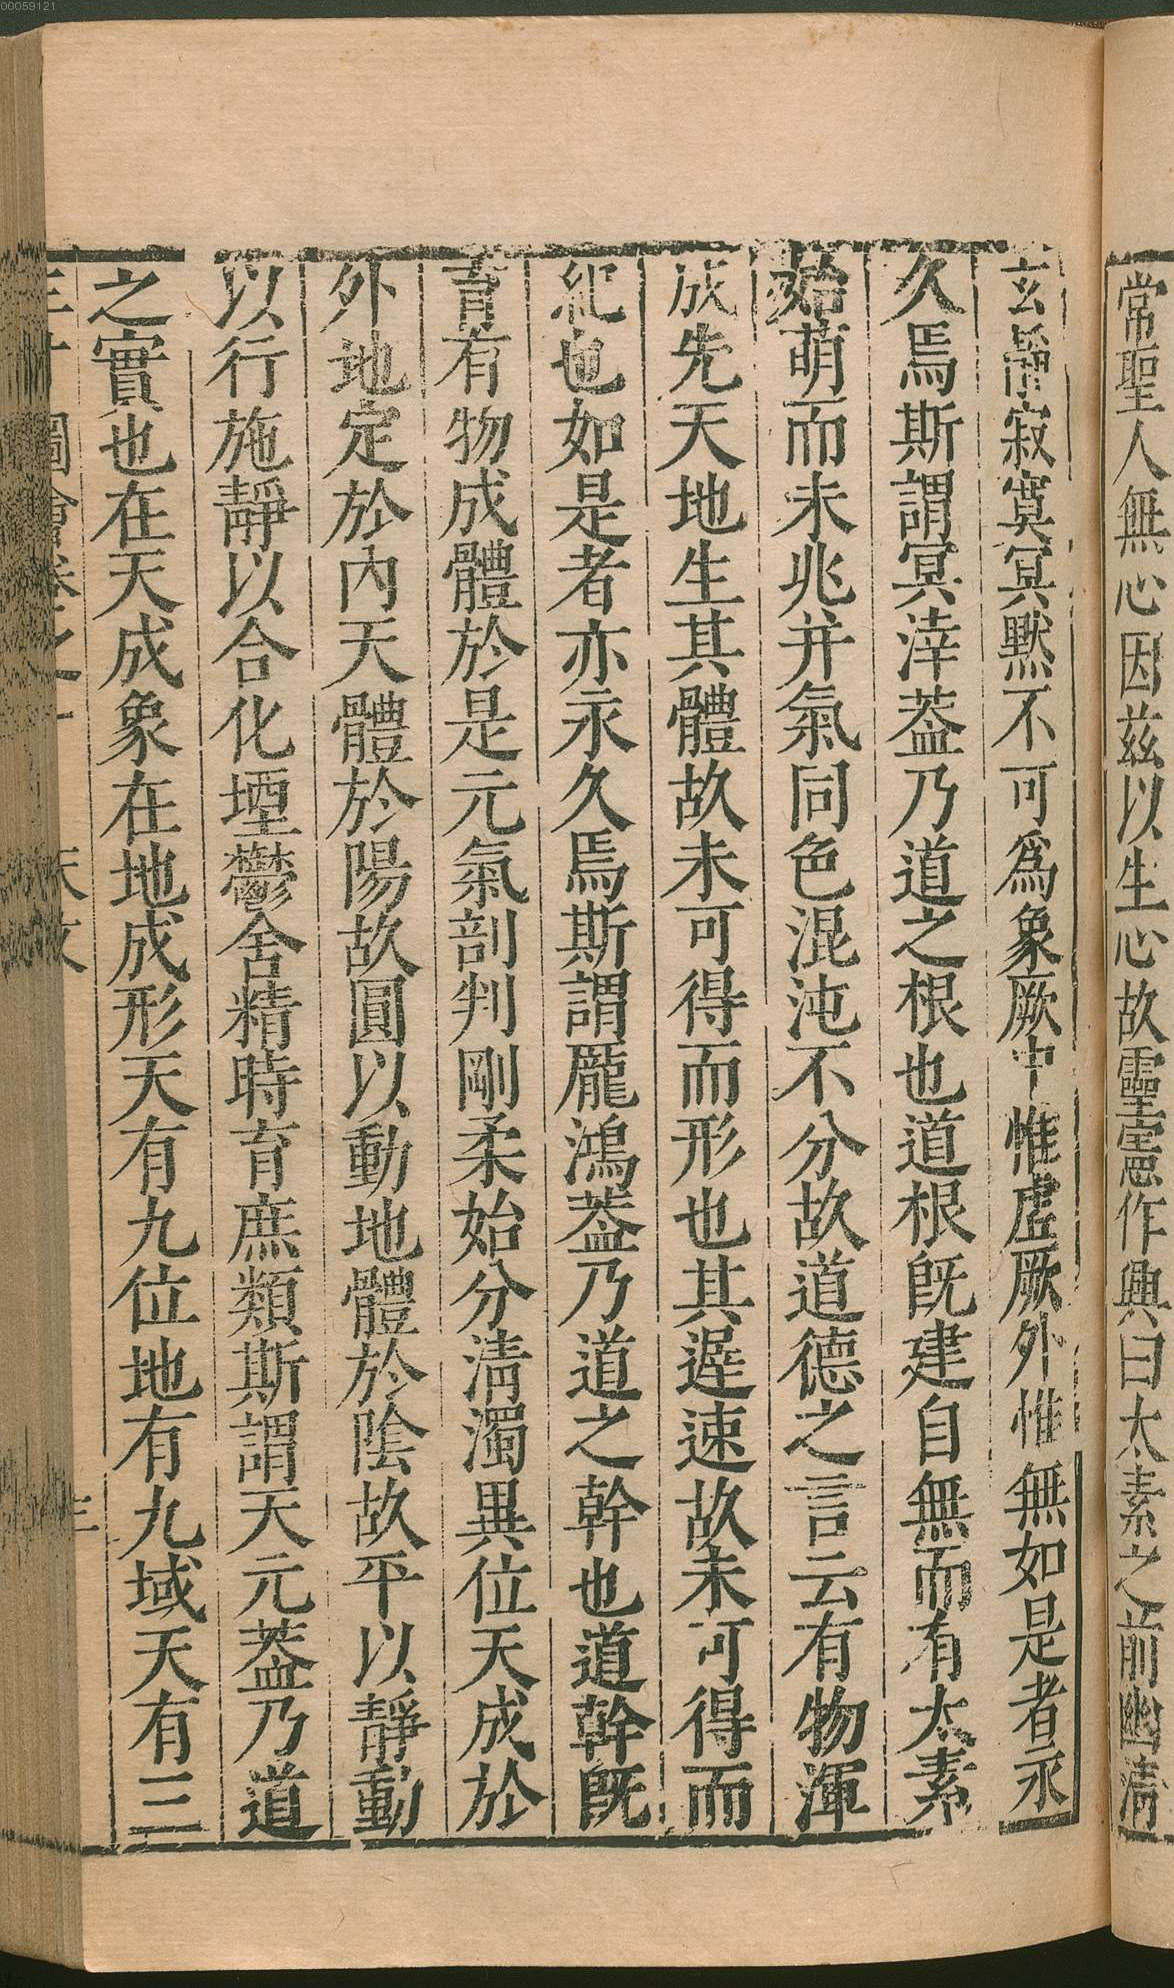 00059121
常聖人無心因茲以生心故靈憲作興曰太素之前幽清
玄靜寂寞冥默不可爲象厥中惟虛厥外惟無如是者永
久焉斯謂冥涬葢乃道之根也道根旣建自無而有太素
始萌而未兆并氣同色混沌不分故道德之言云有物渾
成先天地生其體故未可得而形也其遲速故未可得而
紀也如是者亦永久焉斯謂龎鴻葢乃道之幹也道幹旣
育有物成體於是元氣剖判剛柔始分清濁異位天成於
外地定於內天體於陽故圓以動地體於陰故平以靜動
以行施靜以合化堙鬱舍精時育庶類斯謂天元葢乃道
之實也在天成象在地成形天有九位地有九域天有三
圖會卷之一 天文 三